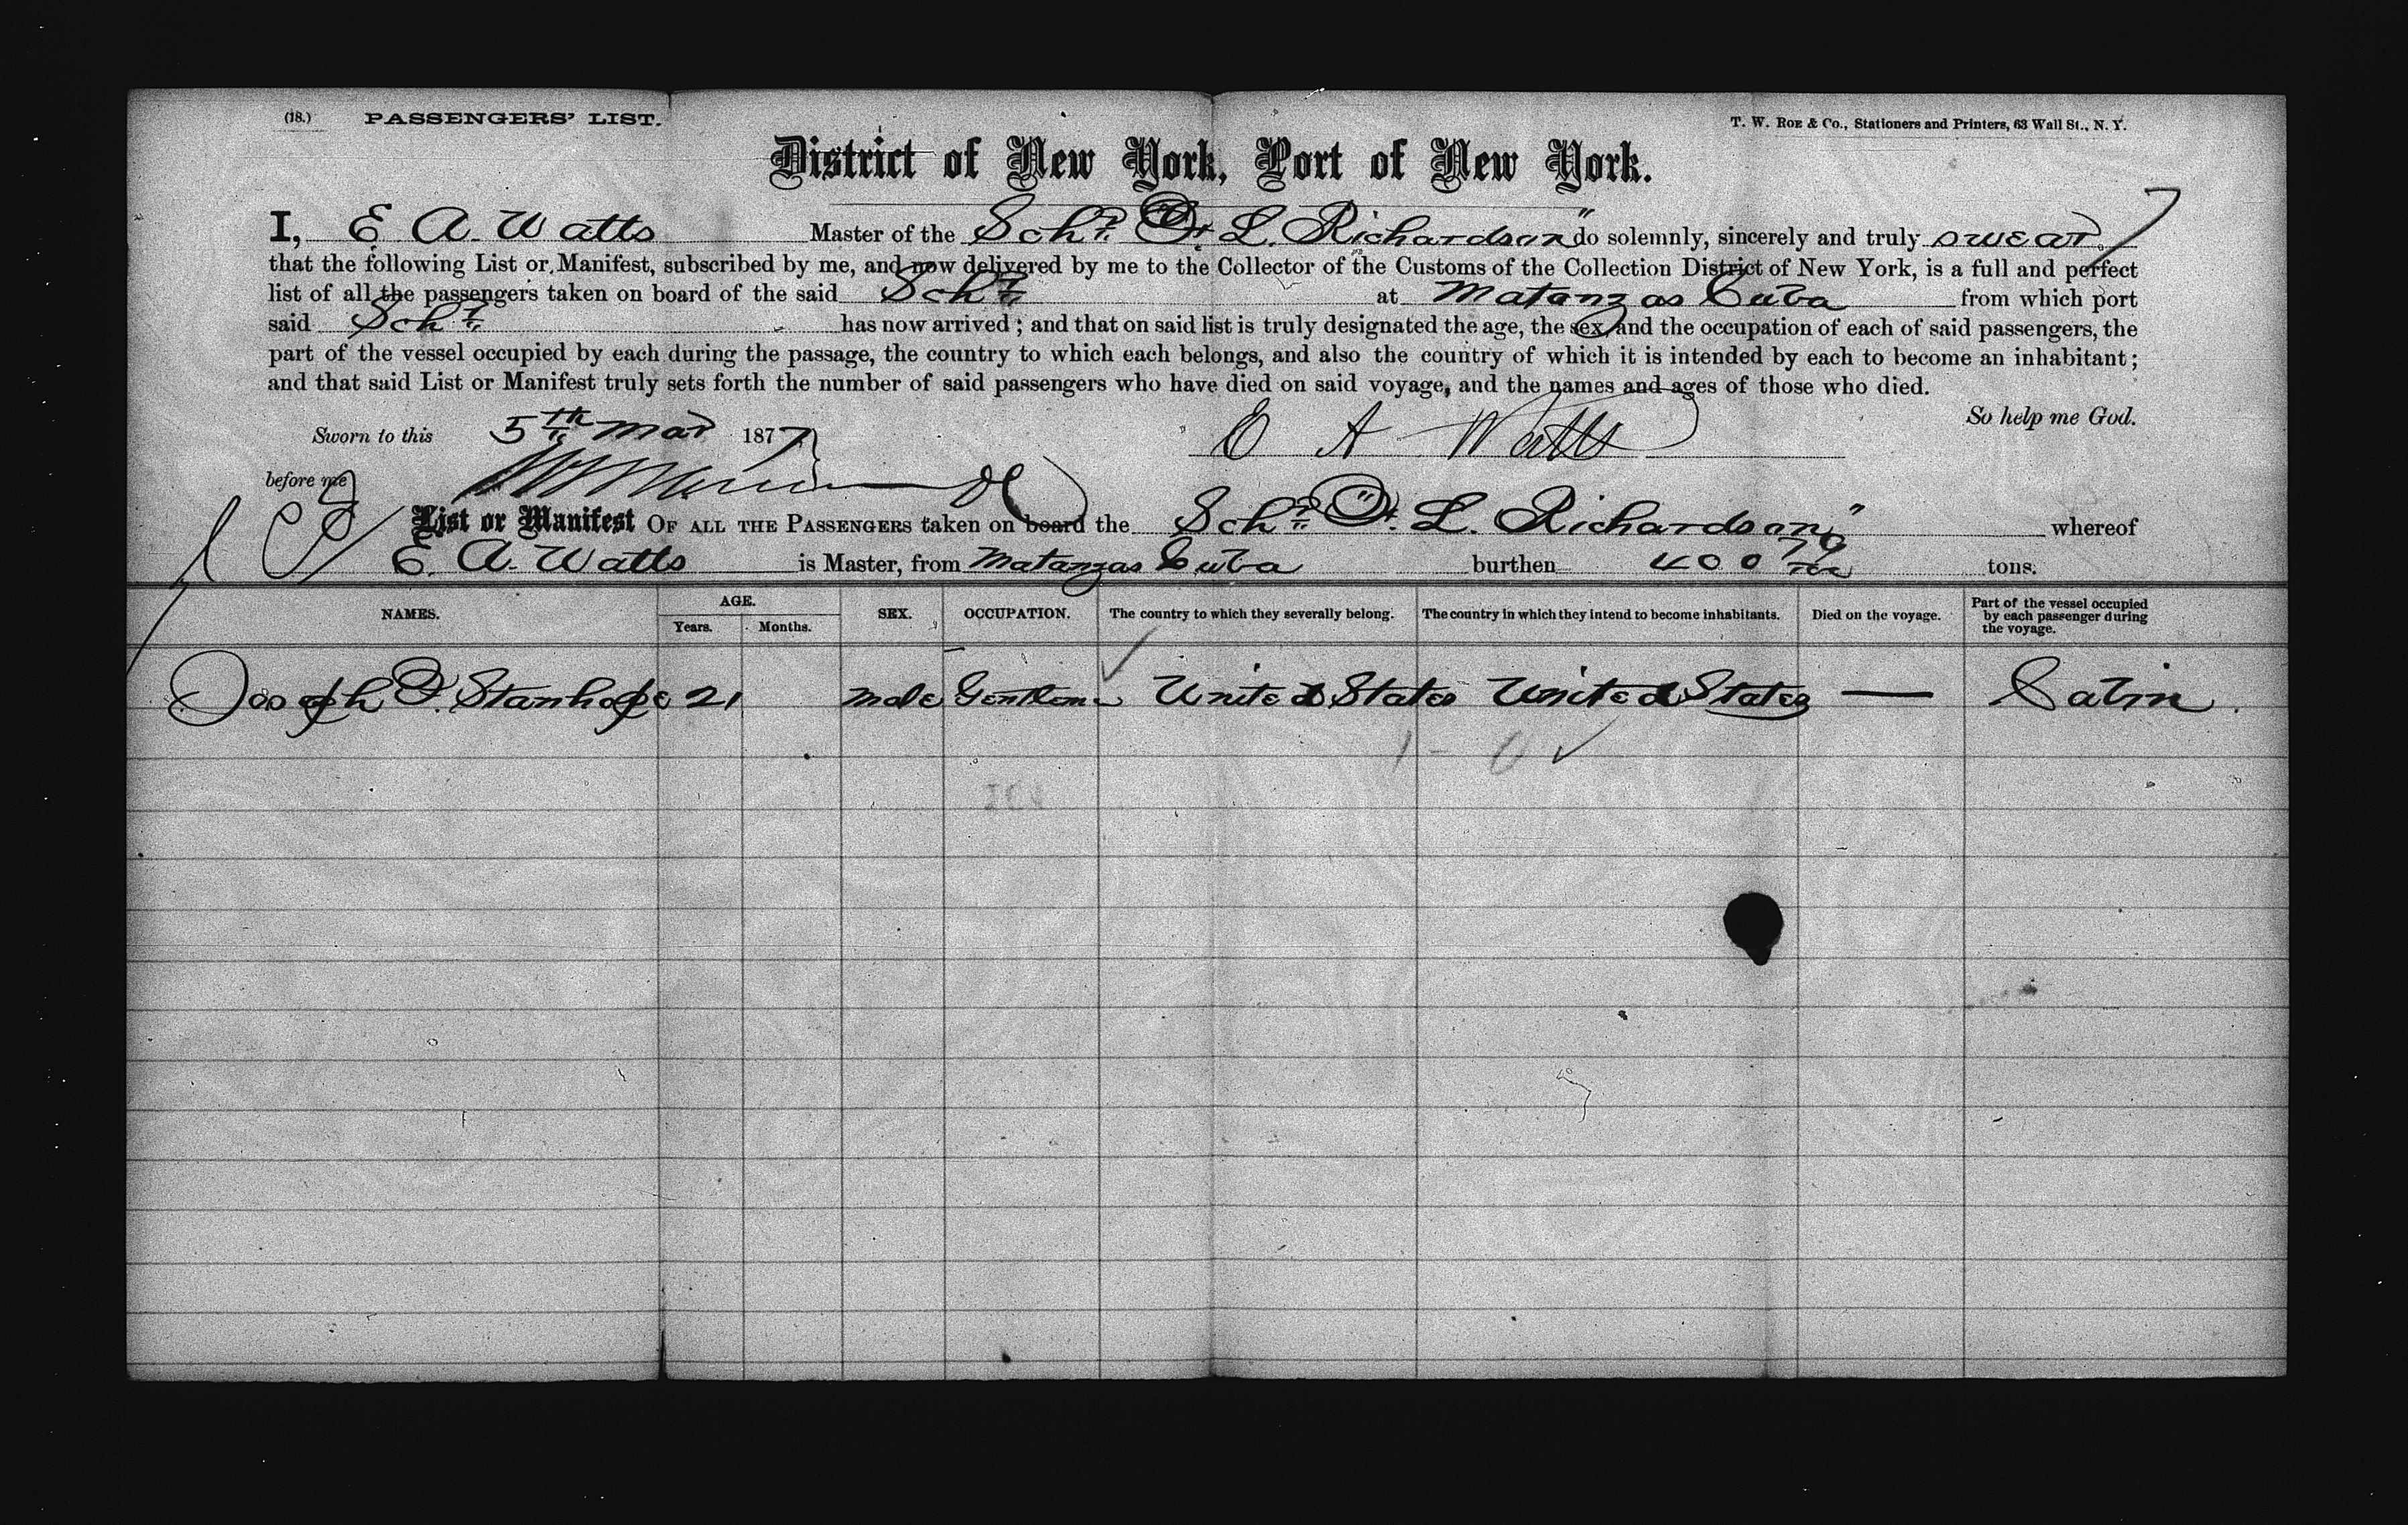 (18.) PASSENGERS' LIST. T. W. ROE & Co., Stationers and Printers, 63 Wall St., N. Y.
District of New York, Port of New York.
I, E. A. Watts Master of the Schr. L. Richardson" do solemnly, sincerely and truly swear
that the following List or Manifest, subscribed by me, and now delivered by me to the Collector of the Customs of the Collection District of New York, is a full and perfect
list of all the passengers taken on board of the said Schr. at Matanzas Cuba from which port
said Schr. has now arrived; and that on said list is truly designated the age, the sex, and the occupation of each of said passengers, the
part of the vessel occupied by each during the passage, the country to which each belongs, and also the country of which it is intended by each to become an inhabitant;
and that said List or Manifest truly sets forth the number of said passengers who have died on said voyage, and the names and ages of those who died.
So help me God.
Sworn to this 5th Mar 1877
E A Watts
before me
List or Manifest OF ALL THE PASSENGERS taken on board the Schr. L. Richardson" whereof
E. A. Watts is Master, from Matanzas Cuba burthen 400 tons.
NAMES. AGE. Years. Months. SEX. OCCUPATION. The country to which they severally belong. The country in which they intend to become inhabitants. Died on the voyage. Part of the vessel occupied by each passenger during the voyage.
Joseph Stanhope 21 male United States United States — Cabin.